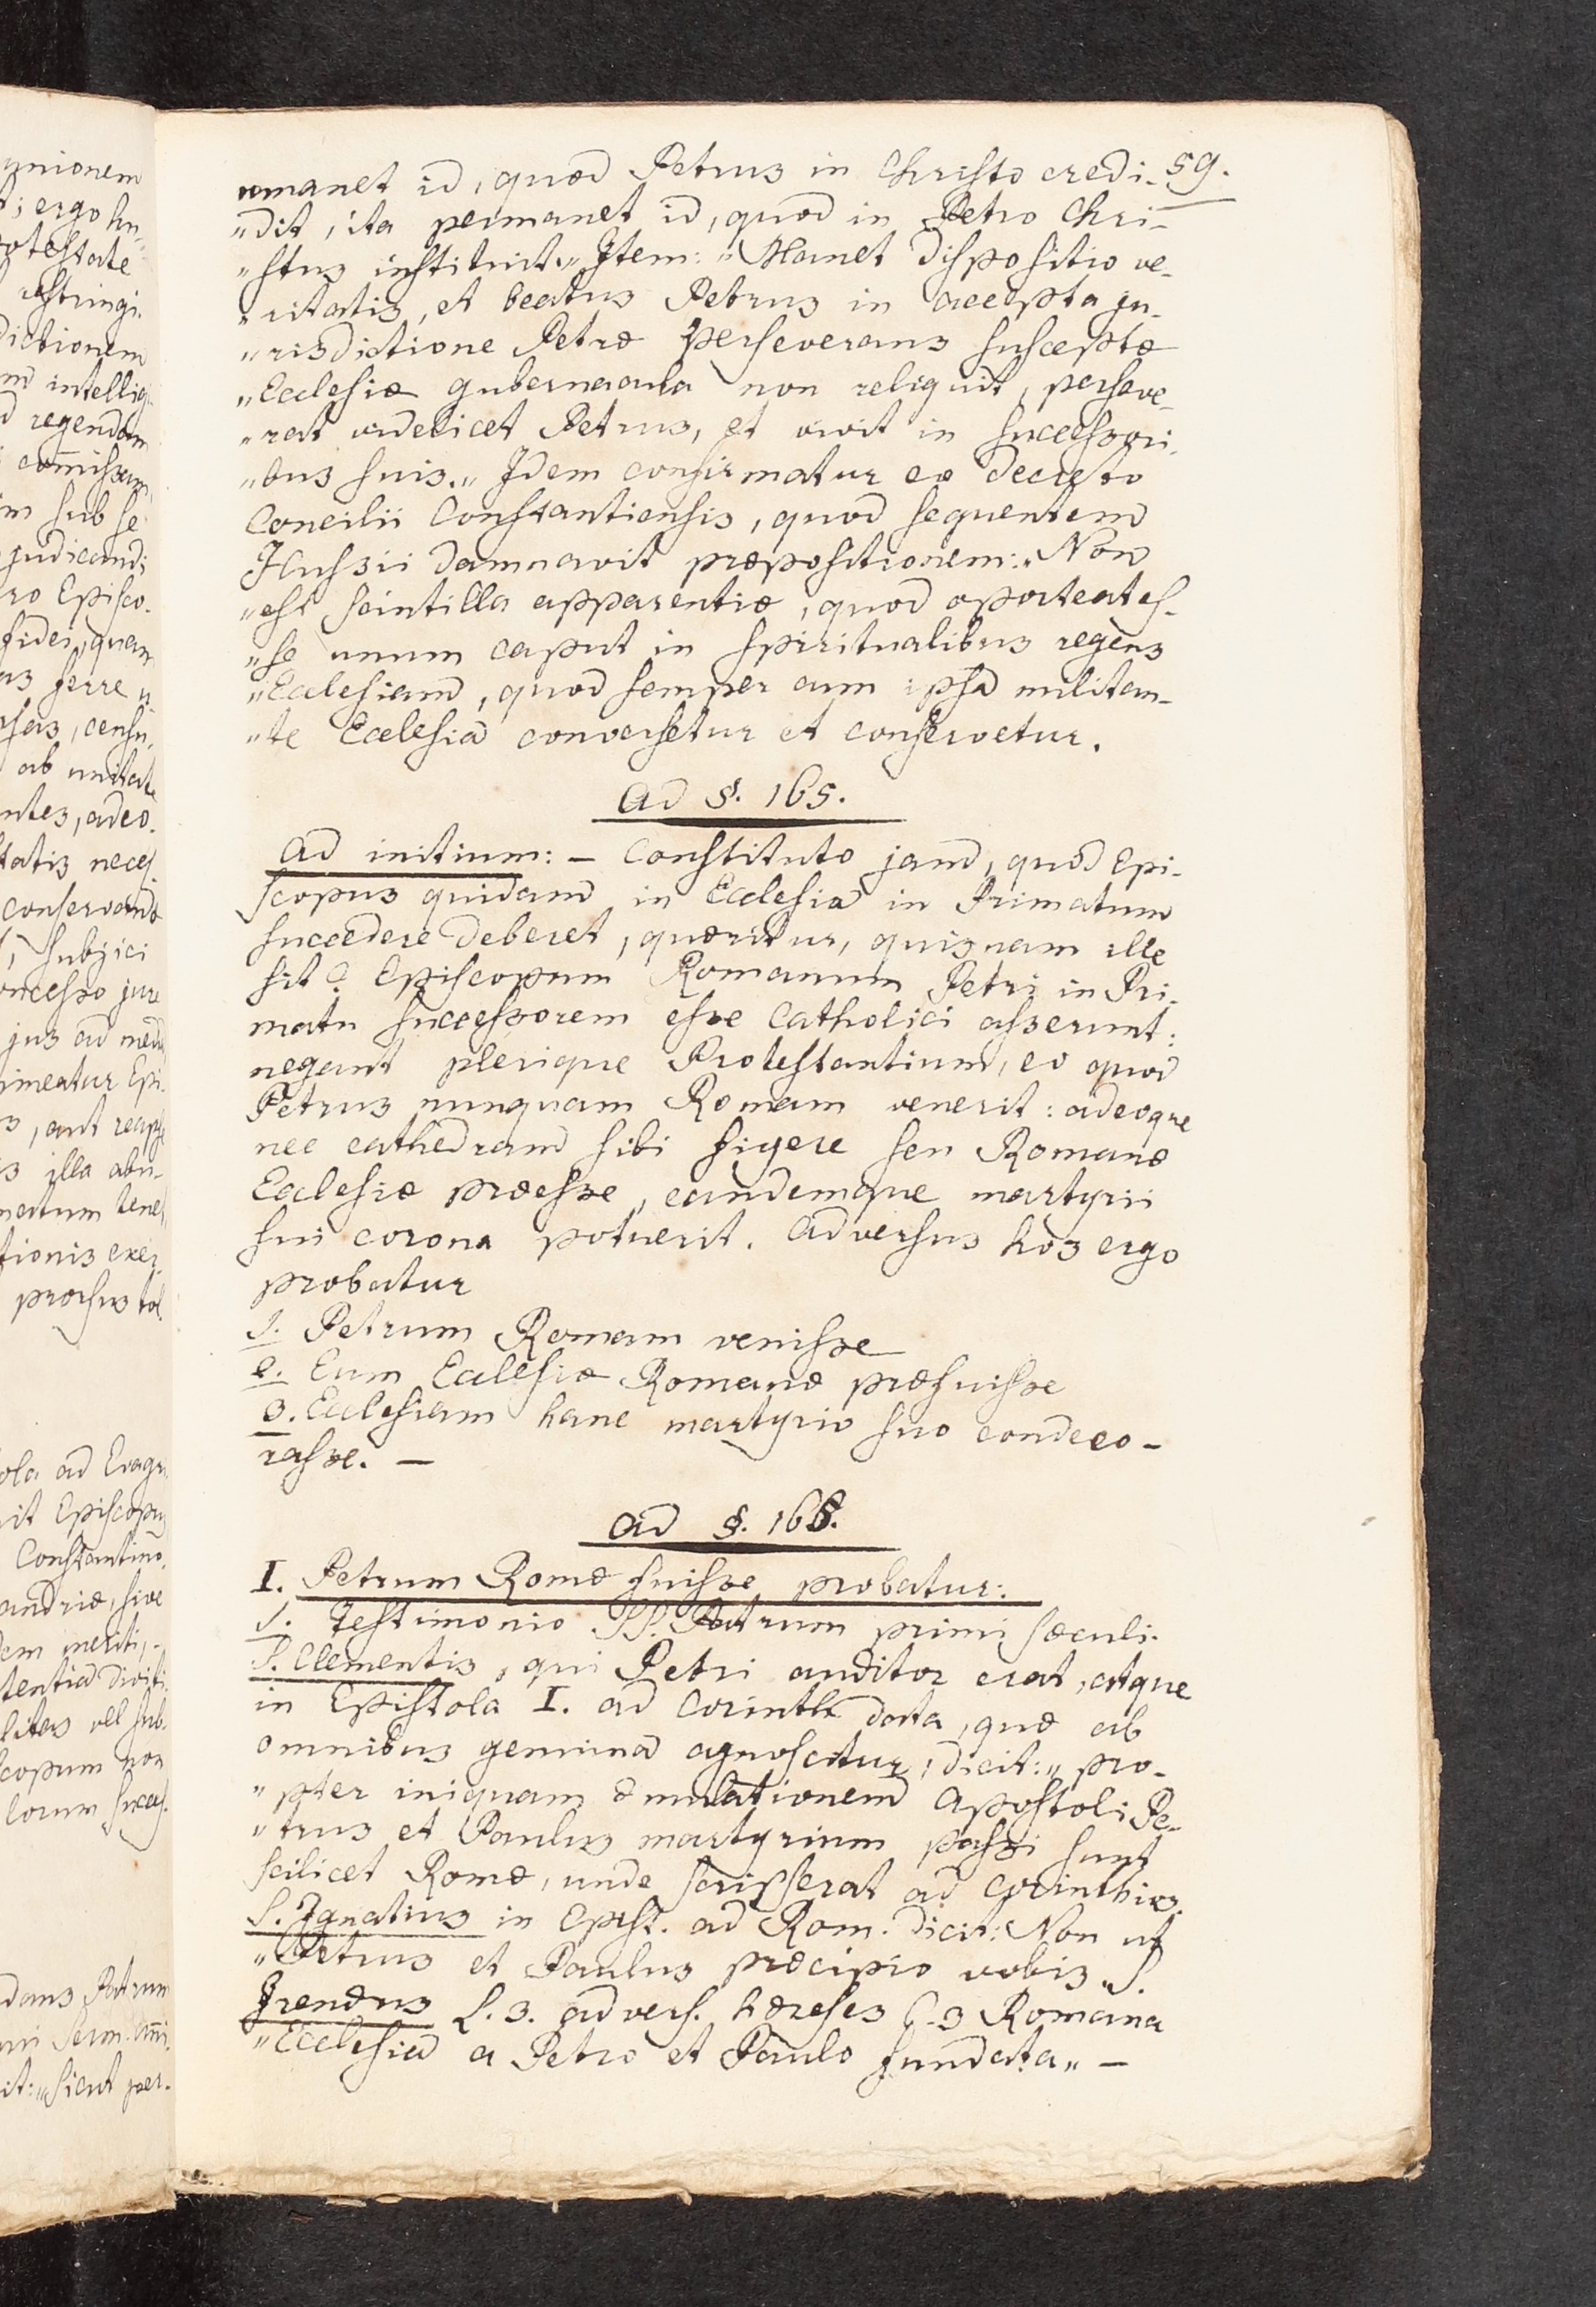 59.
„manet id, quod Petrus in Christo credi-
„dit, ita permanet id, quod in Petro Chri-
„stus instituit.„ Item: „Manet dispositio ve-
„ritatis, et beatus Petrus in accepta ju-
„risdictione Petræ perseverans susceptæ
„Ecclesiæ gubernacula non reliquit, perseve-
„rat videlicet Petrus, et vivit in successori-
„bus suis.„ Idem confirmatur ex decreto
Concilii Constantiensis, quod sequentem
Hussii damnavit propositionem: „Non
„est scintilla apparentiæ, quod oporteat es-
„se unum caput in spiritualibus regens
„Ecclesiam, quod semper cum ipsa militan-
„te Ecclesia conversetur et conservetur.
Ad §. 165.
Ad initium: – Constituto jam, quod Epi-
scopus quidam in Ecclesia in Primatum
succedere deberet, quæritur, quisnam ille
sit? Episcopum Romanum Petri in Pri-
matu successorem esse Catholici asserunt:
negant plerique Protestantium, eo quod
Petrus nunquam Romam venerit: adeoque
nec cathedram sibi figere seu Romanæ
Ecclesiæ præesse, eandemque martyrii
sui corona potuerit. Adversus hos ergo
probatur
1. Petrum Romam venisse
2. Eum Ecclesiæ Romanæ præfuisse
3. Ecclesiam hanc martyrio suo condeco-
rasse. –
Ad §. 166.
I. Petrum Romæ fuisse probatur:
1. Testimonio SS. Patrum primi sæculi.
S. Clementis, qui Petri auditor erat, atque
in Epistola I. ad Corinth data, quæ ab
omnibus genuina agnoscitur, dicit: „pro-
„pter iniquam æmulationem Apostoli Pe-
„trus et Paulus martyrium passi sunt
scilicet Romæ, unde scripserat ad Corinthios.
S. Ignatius in Epist. ad Rom. dicit: Non ut
„Petrus et Paulus præcipio vobis„ S.
Irenæus L. 3. advers. hæreses C. 3 Romana
„Ecclesia a Petro et Paulo fundata„ –